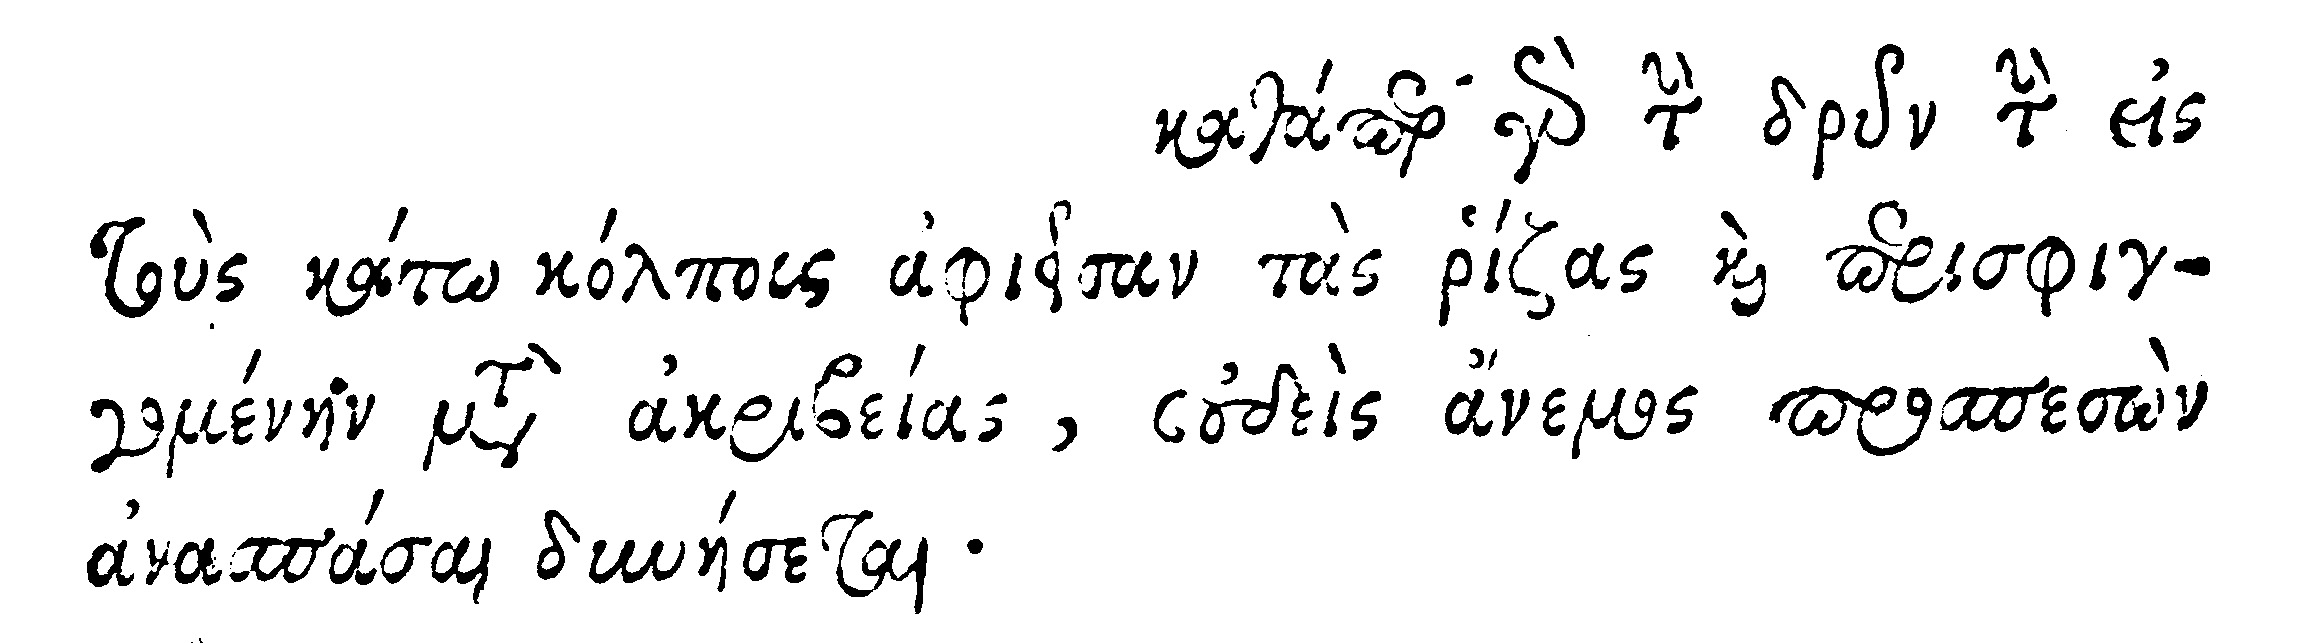 καθάπερ γὰρ τὴν δρῦν τὴν εἰς
τοὺς κάτω κόλπους ἀφιεῖσαν τὰς ῥίζας καὶ περισφιγ-
γομένην μετὰ ἀκριβείας, οὐδεὶς ἄνεμος προσπεσὼν
ἀνασπάσαι δυνήσεται·